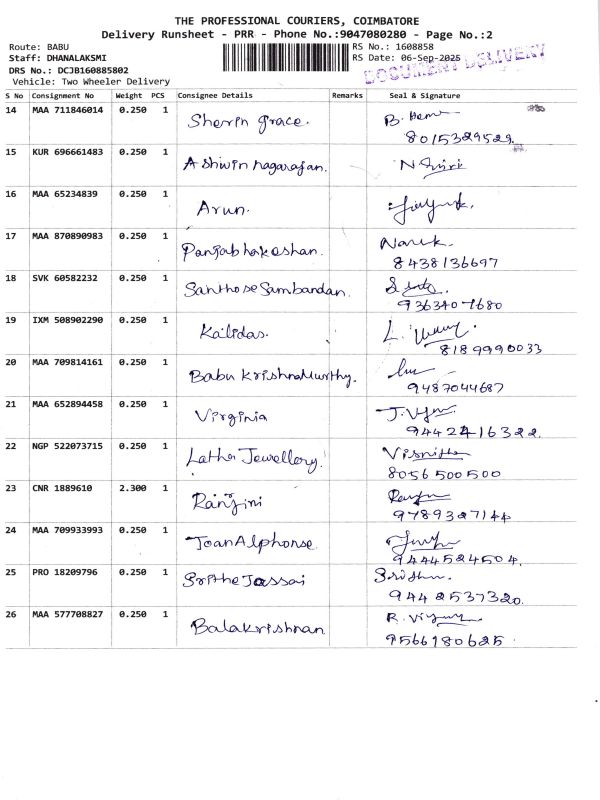 THE PROFESSIONAL COURIERS, COIMBATORE
Delivery Runsheet - PRR - Phone No.:9047080280 - Page No.:2
Route: BABU
Staff: DHANALAKSMI
DRS No.: DCJB160885802
Vehicle: Two Wheeler Delivery
RS No.: 1608858
RS Date: 06-Sep-2025
DOCUMENT DELIVERY
S No Consignment No Weight PCS Consignee Details Remarks Seal & Signature
14 MAA 711846014 0.250 1 Sherin grace. B. Hem
8015329529
15 KUR 696661483 0.250 1 Ashwin nagarajan. N
16 MAA 65234839 0.250 1 Arun.
17 MAA 870890983 0.250 1 Panjabhakeshan.
8438136697
18 SVK 60582232 0.250 1 Santhose Sambandan.
9363407680
19 IXM 508902290 0.250 1 Kalidas. L.
8189990033
20 MAA 709814161 0.250 1 Babu KrishnaMurthy.
9487044687
21 MAA 652894458 0.250 1 Virginia J.
9442416322.
22 NGP 522073715 0.250 1 Latha Jewellery.
8056500500
23 CNR 1889610 2.300 1 Ranjini
9789327144
24 MAA 709933993 0.250 1 Joan Alphonse.
9444524504.
25 PRO 18209796 0.250 1
9442537320.
26 MAA 577708827 0.250 1 Balakrishnan R.
9566980625